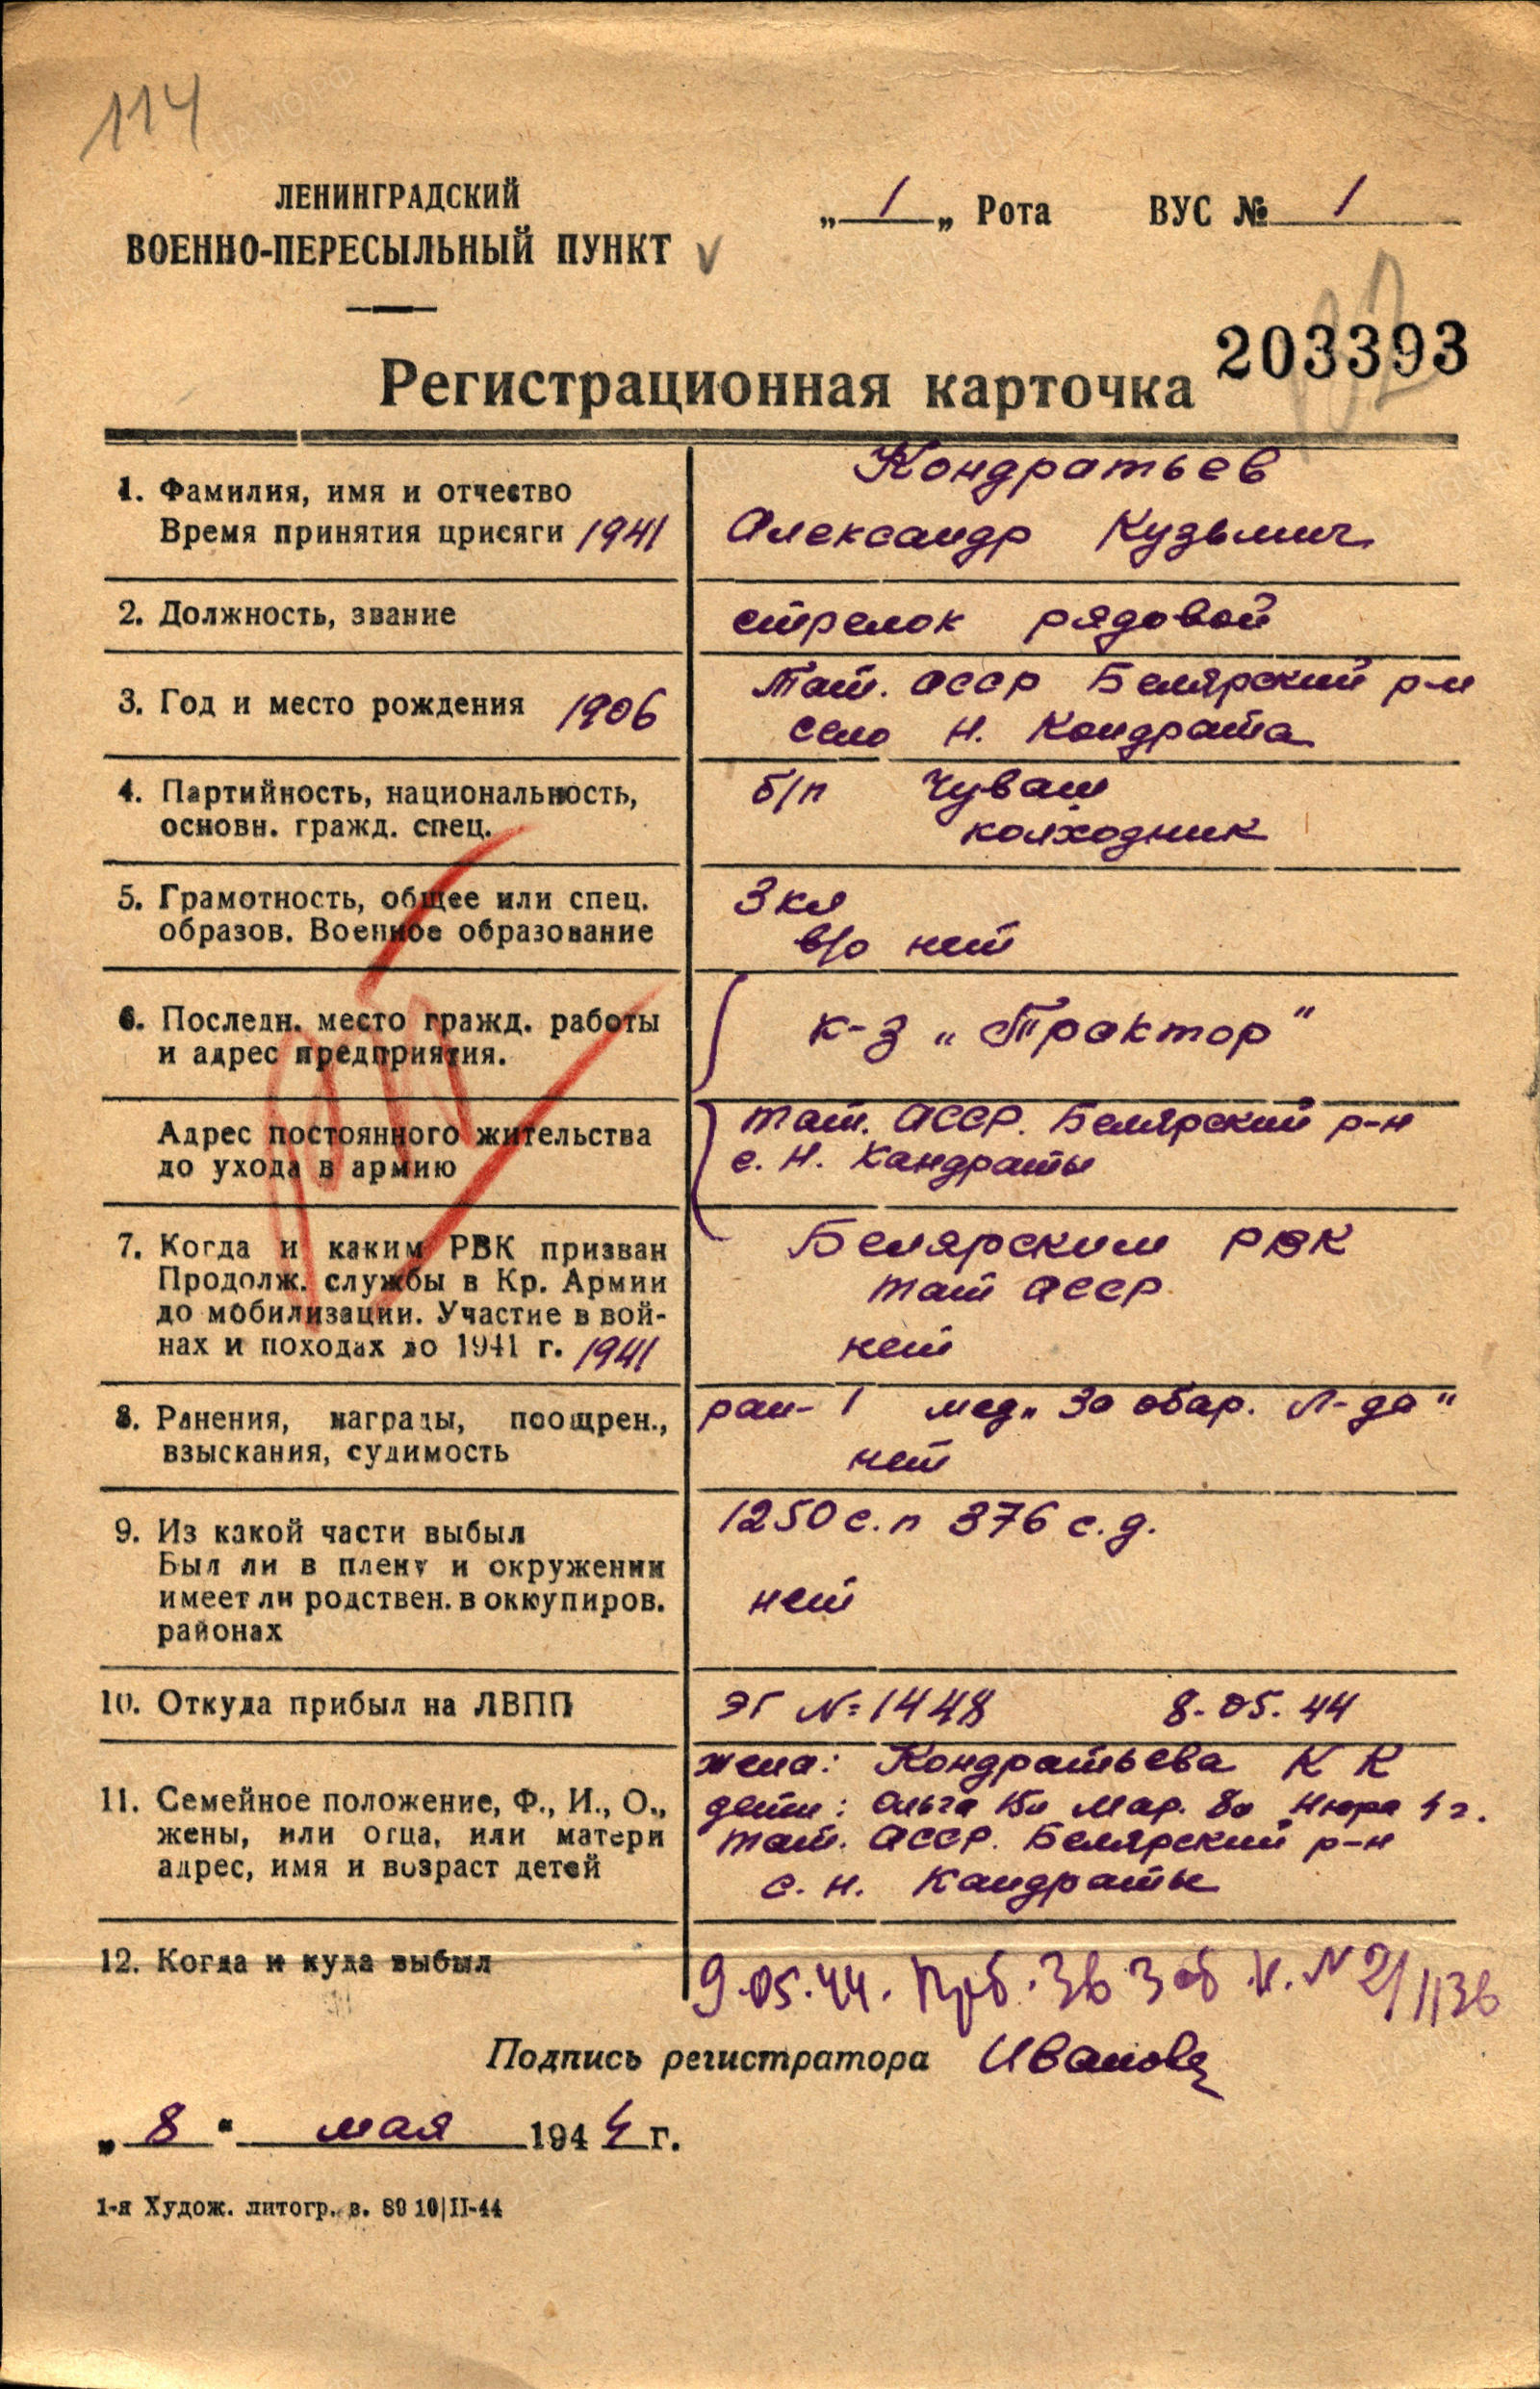 114
ЛЕНИНГРАДСКИЙ
ВОЕННО-ПЕРЕСЫЛЬНЫЙ ПУНКТ
„ 1 „ Рота ВУС № 1
203393
Регистрационная карточка
1. Фамилия, имя и отчество
Время принятия присяги 1941
Кондратьев
Александр Кузьмич
2. Должность, звание
стрелок рядовой
3. Год и место рождения 1906
Тат. АССР Белярский р-н
село Н. Кондрата
4. Партийность, национальность,
основн. гражд. спец.
б/п Чуваш
колходник
5. Грамотность, общее или спец.
образов. Военное образование
3 кл
в/о нет
6. Последн. место гражд. работы
и адрес предприятия.
к-з „Трактор"
Адрес постоянного жительства
до ухода в армию
Тат. АССР. Белярский р-н
с. Н. Кандраты
7. Когда и каким РВК призван
Продолж. службы в Кр. Армии
до мобилизации. Участие в вой-
нах и походах до 1941 г. 1941
Белярским РВК
Тат АССР
нет
8. Ранения, награды, поощрен.,
взыскания, судимость
ран- 1 мед „За обар. Л-да"
нет
9. Из какой части выбыл
Был ли в плену и окружении
имеет ли родствен. в оккупиров.
районах
1250 с.п 376 с.д.
нет
10. Откуда прибыл на ЛВПП
ЭГ № 1448 8.05.44
11. Семейное положение, Ф., И., О.,
жены, или отца, или матери
адрес, имя и возраст детей
жена: Кондратьева К К
дети: Ольга Мар. Нюра 4 г.
Тат. АССР. Белярский р-н
с. Н. Кандраты
12. Когда и куда выбыл
9.05.44. N 2/1136
Подпись регистратора Иванова
„ 8 " мая 1944 г.
1-я Худож. литогр. в. 89 10|II-44